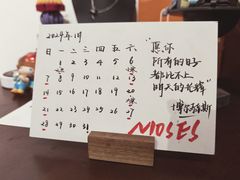 2024年1月
日 一 二 三 四 五 六
1 2 3 4 5 6
7 8 9 10 11 12 13
14 15 16 17 18 19 20
21 22 23 24 25 26 27
28 29 30 31
"愿你
所有的日子
都比不上
明天的光辉"
-博尔赫斯
MOSES